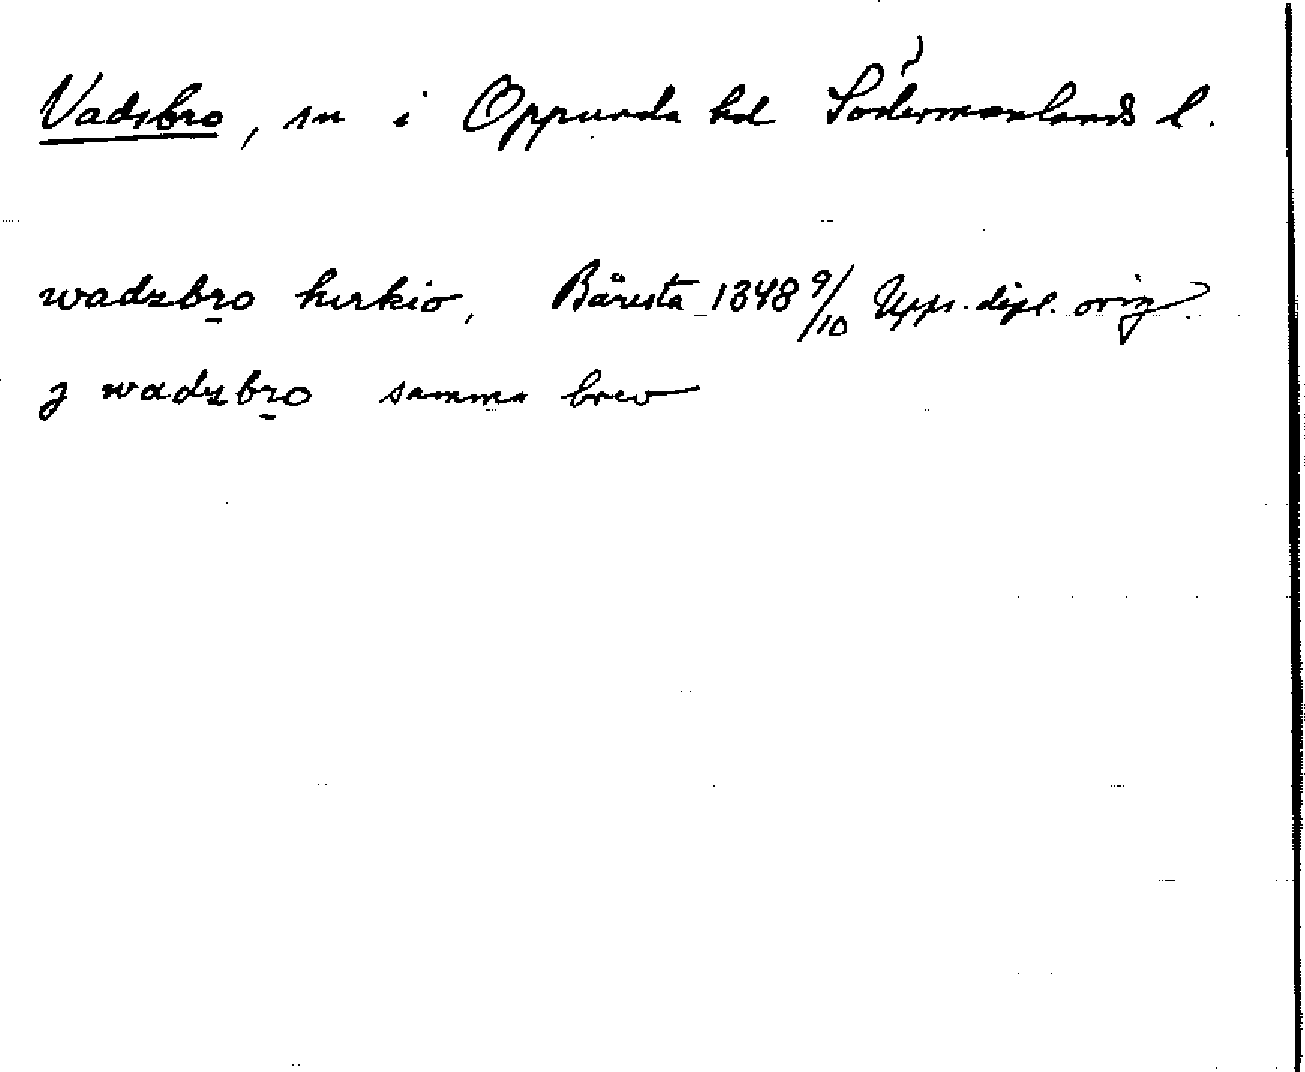 Vadsbro, sn i Oppunda hd Södermanlands l.
wadzbro kirkio, Bärista 1348 9/10 Upps. dipl. orig.
j wadzbro samma brev